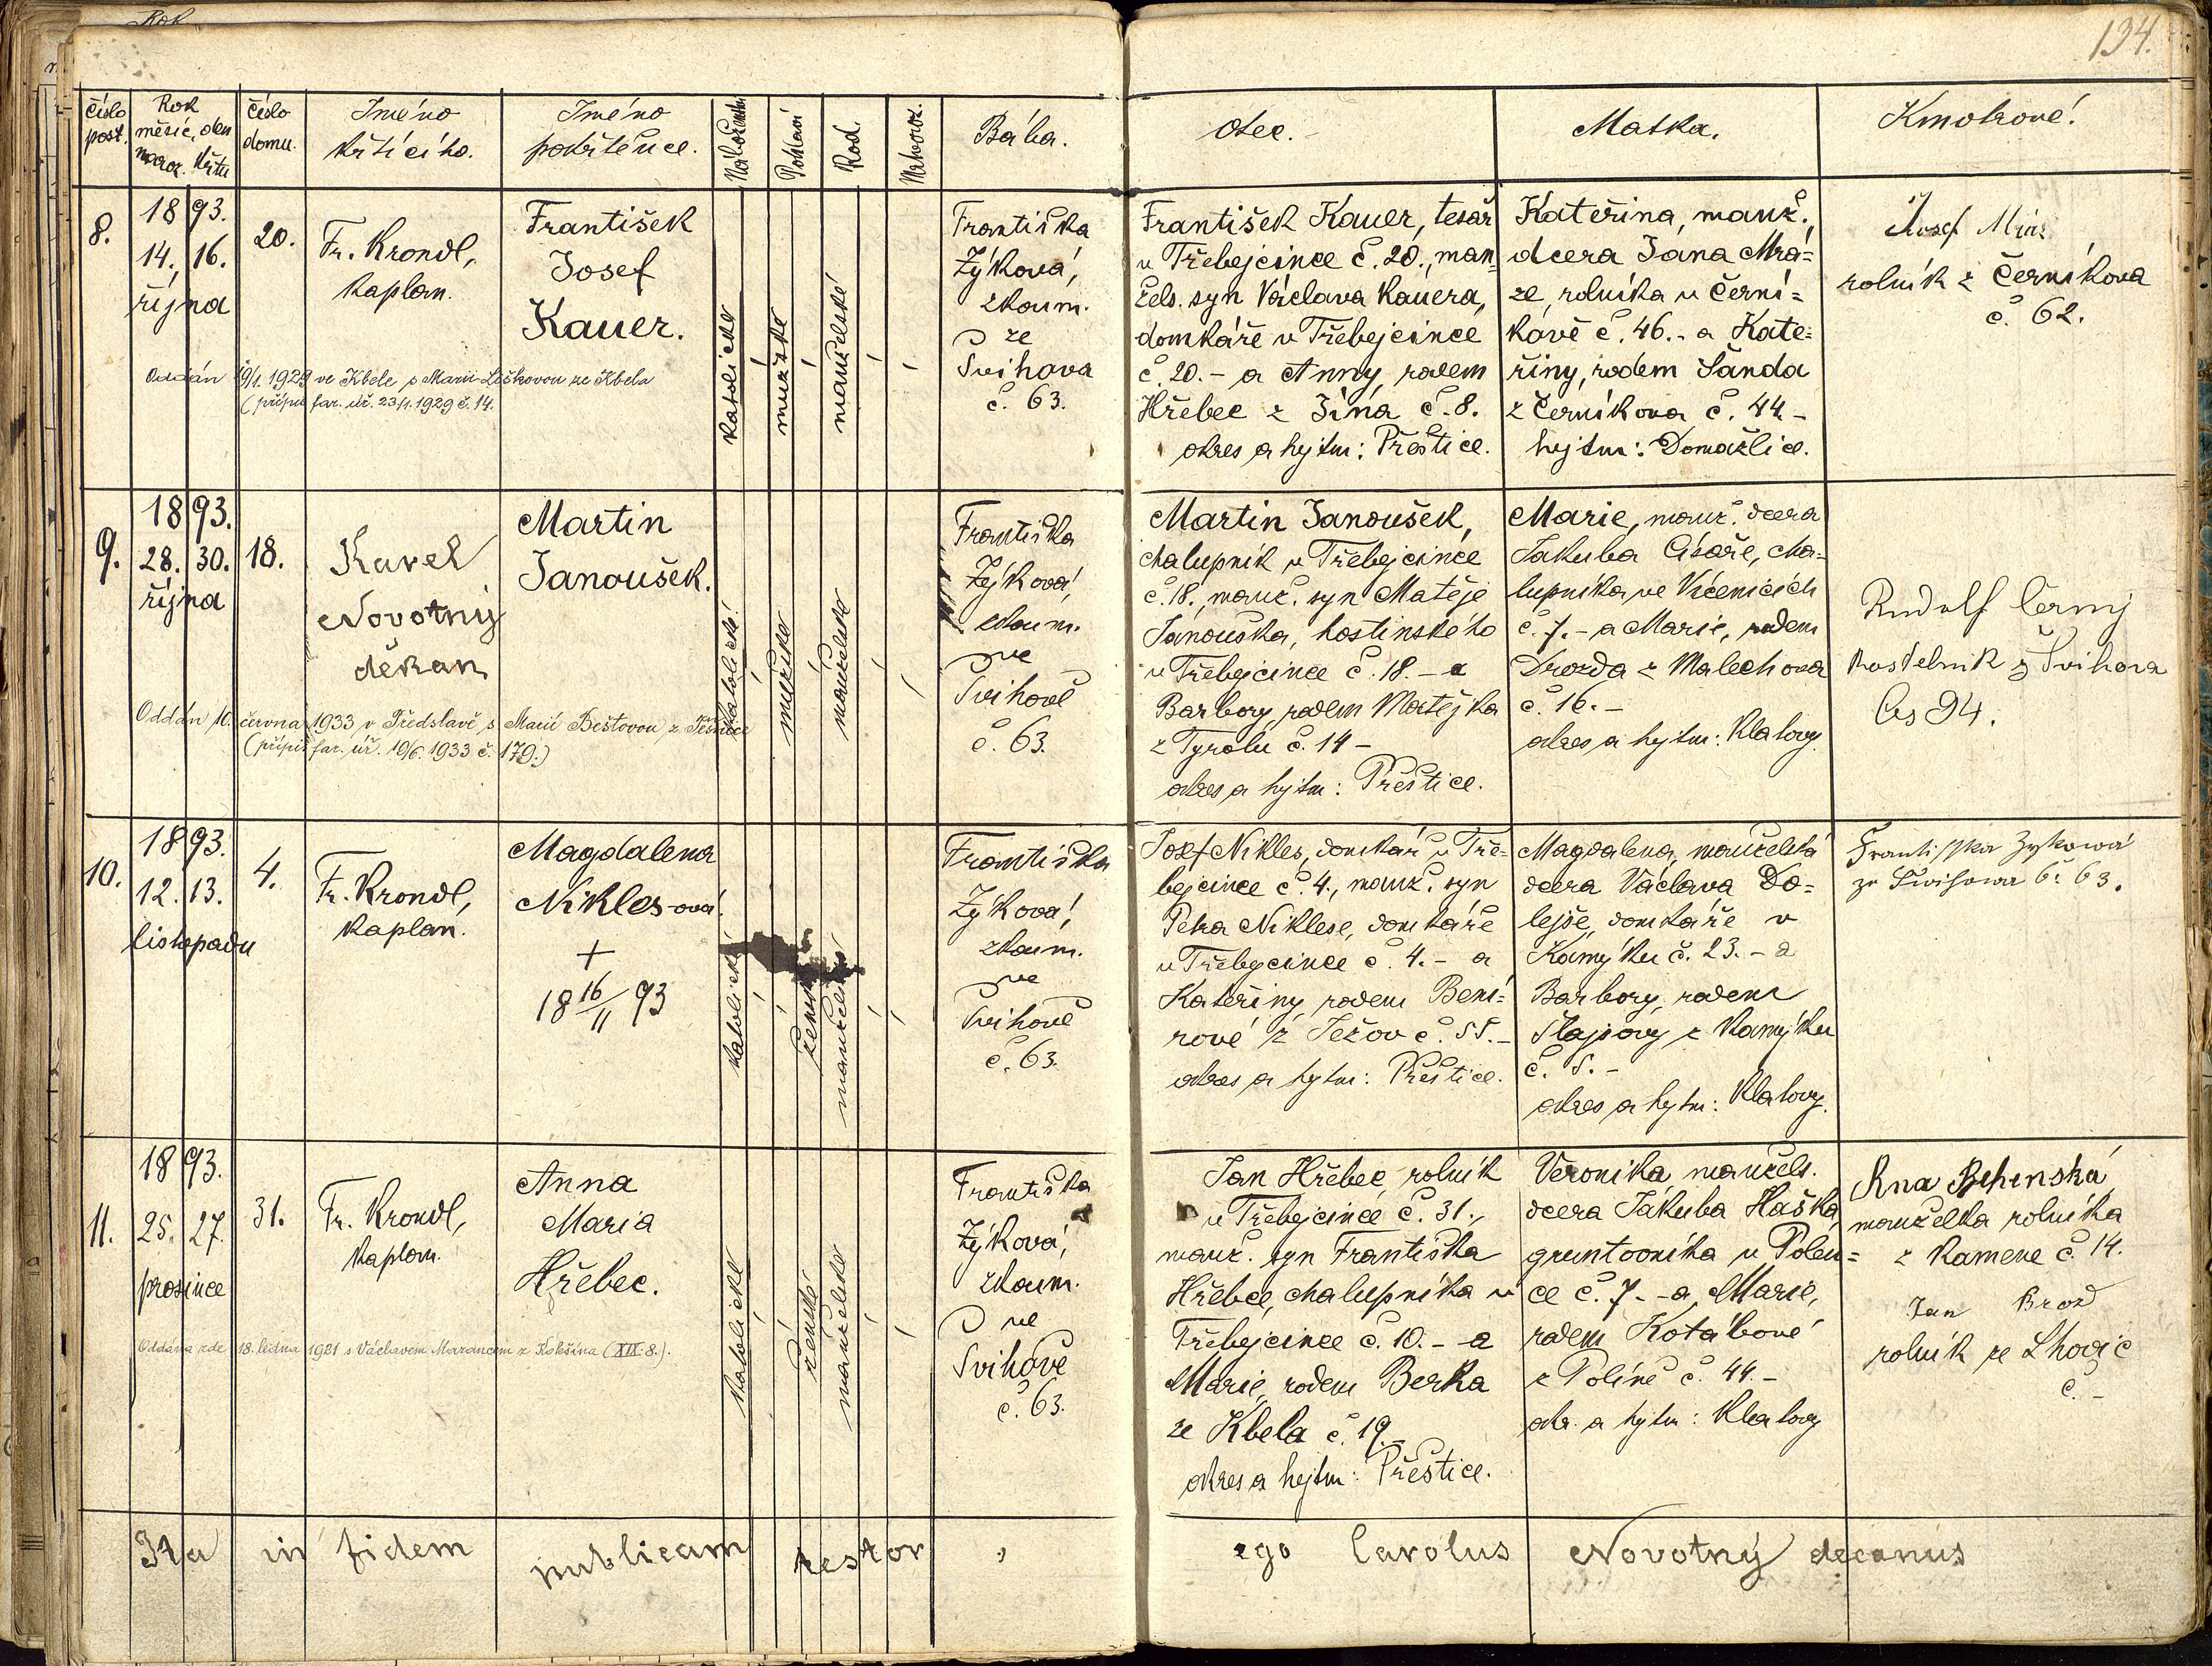 Rok
134.
číslo
post.
Rok
měsíc, den
naroz. křtu
číslo
domu.
Jméno
křtícího.
Jméno
pokřtěnce.
Náboženství
Pohlaví
Rod.
Bába.
Otec.
Matka.
Kmotrové.
8.
1893.
14. 16.
října
20.
Fr. Krondl,
kaplan.
František
Josef
Kauer.
katolické
mužské
manželské
Františka
Zýková,
zkoum.
ze
Švihova
č. 63.
František Kauer, tesař
v Třebejcince č. 20., man=
žels. syn Václava Kauera,
domkáře v Třebejcince
č. 20. - a Anny, rodem
Hřebec z Jína č. 8.
okres a hejtm: Přeštice.
Kateřina, manž.,
dcera Jána Mrá=
ze, rolníka v Černí=
kově č. 46. - a Kate=
řiny, rodem Šanda
z Černíkova č. 44. -
hejtm: Domažlice.
Josef Mráz
rolník z Černíkova
č. 62.
Oddán 19/1. 1929 ve Kbele s Marií Liškovou ze Kbela
(přípis far. úř. 23/1. 1929 č. 14.
9.
1893.
28. 30.
října
18.
Karel
Novotný
děkan
Martin
Janoušek.
katolické
mužské
manželské
Františka
Zýková,
zkoum.
ve
Švihově
č. 63.
Martin Janoušek,
chalupník v Třebejcince
č. 18., manž. syn Matěje
Janouška, hostinského
v Třebejcince č. 18. - a
Barbory, rodem Matějka
z Tyrolu č. 14 -
okres a hejtm: Přeštice.
Marie, manž. dcera
Jakuba Císaře, cha=
lupníka ve Vícenicích
č. 7. - a Marie, rodem
Drozda z Malechova
č. 16. -
okres a hejtm: Klatovy.
Rudolf Černý
kostelník z Švihova
čís 94.
Oddán 10. června 1933 v Předslavě s Marií Beštovou z
(přípis far. úř. 10/6. 1933 č. 179.)
10.
1893.
12. 13.
listopadu
4.
Fr. Krondl,
kaplan.
Magdalena
Nikles-ová.
+
18 16/11 93
katolické
ženské
manželské
Františka
Zýková,
zkoum.
ve
Švihově
č. 63.
Josef Nikles, domkář v Tře=
bejcince č. 4., manž. syn
Petra Niklese, domkáře
v Třebejcince č. 4. - a
Kateřiny, rodem Bení=
rové z Ježov č. 55. -
okres a hejtm: Přeštice.
Magdalena, manželská
dcera Václava Do=
lejše, domkáře v
Kamýku č. 23. - a
Barbory, rodem
Šlajsovy z Kamýku
č. 5. -
okres a hejtm: Klatovy.
Frantisska Zykowá
ze Swihowa č. 63.
11.
1893.
25. 27.
prosince
31.
Fr. Krondl,
kaplan.
Anna
Maria
Hřebec.
katolické
ženské
manželské
Františka
Zýková,
zkoum.
ve
Švihově
č. 63.
Jan Hřebec, rolník
v Třebejcince č. 31.,
manž. syn Františka
Hřebce, chalupníka v
Třebejcince č. 10. - a
Marie, rodem Berka
ze Kbela č. 19. -
okres a hejtm: Přeštice.
Veronika manžels.
dcera Jakuba Haška,
gruntovníka v Polen=
ce č. 7. - a Marie,
rodem Kotábové
z Políně č. 44. -
okr. a hejtm: Klatovy
Ana Behenská
manželka rolníka
z Kamene č. 14.
Jan Brož
rolník ze Lhovic
č. -
Oddána zde 18. ledna 1921 s Václavem Marancem z Kokšína (XIX. 8.).
Ita in fidem publicam testor, ego Carolus Novotný decanus